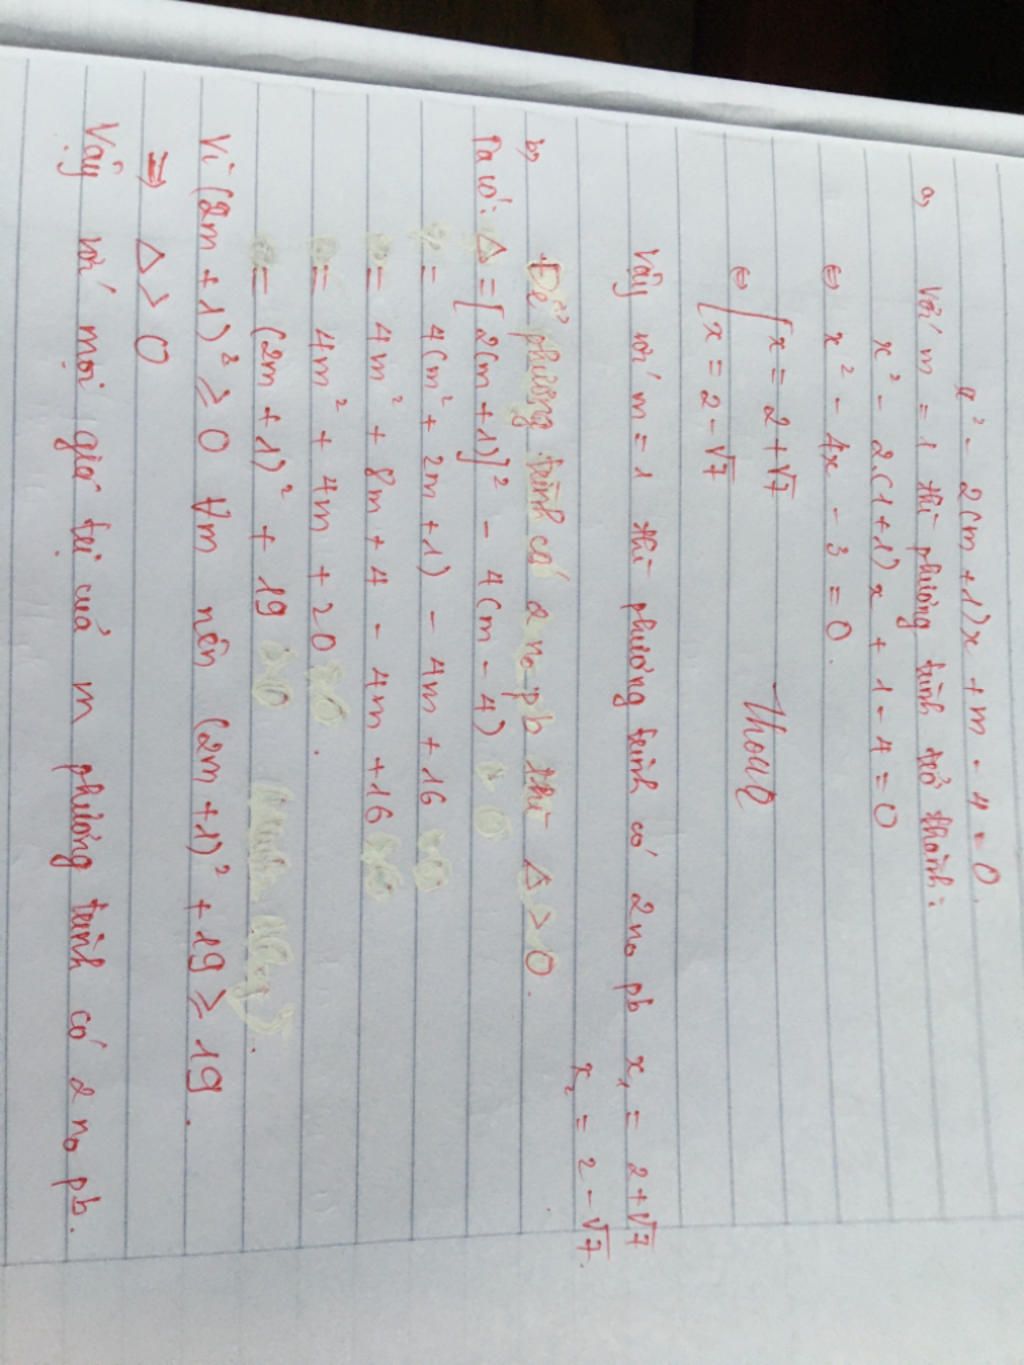 x² - 2(m+1)x + m - 4 = 0.
a, Với m = 1 thì phương trình trở thành:
x² - 2.(1+1)x + 1 - 4 = 0
⇔ x² - 4x - 3 = 0.
⇔ [ x = 2+√7
x = 2-√7
Thoaa
Vậy với m = 1 thì phương trình có 2 n₀ pb x₁ = 2+√7
x₂ = 2-√7.
b, Để phương trình có 2 n₀ pb thì Δ > 0.
Ta có: Δ = [2(m+1)]² - 4(m-4) > 0
= 4(m² + 2m + 1) - 4m + 16
= 4m² + 8m + 4 - 4m + 16
= 4m² + 4m + 20 .
= (2m+1)² + 19
Vì (2m+1)² ≥ 0 ∀m nên (2m+1)² + 19 ≥ 19.
⇒ Δ > 0
Vậy với mọi giá trị cuả m phương trình có 2 n₀ pb.